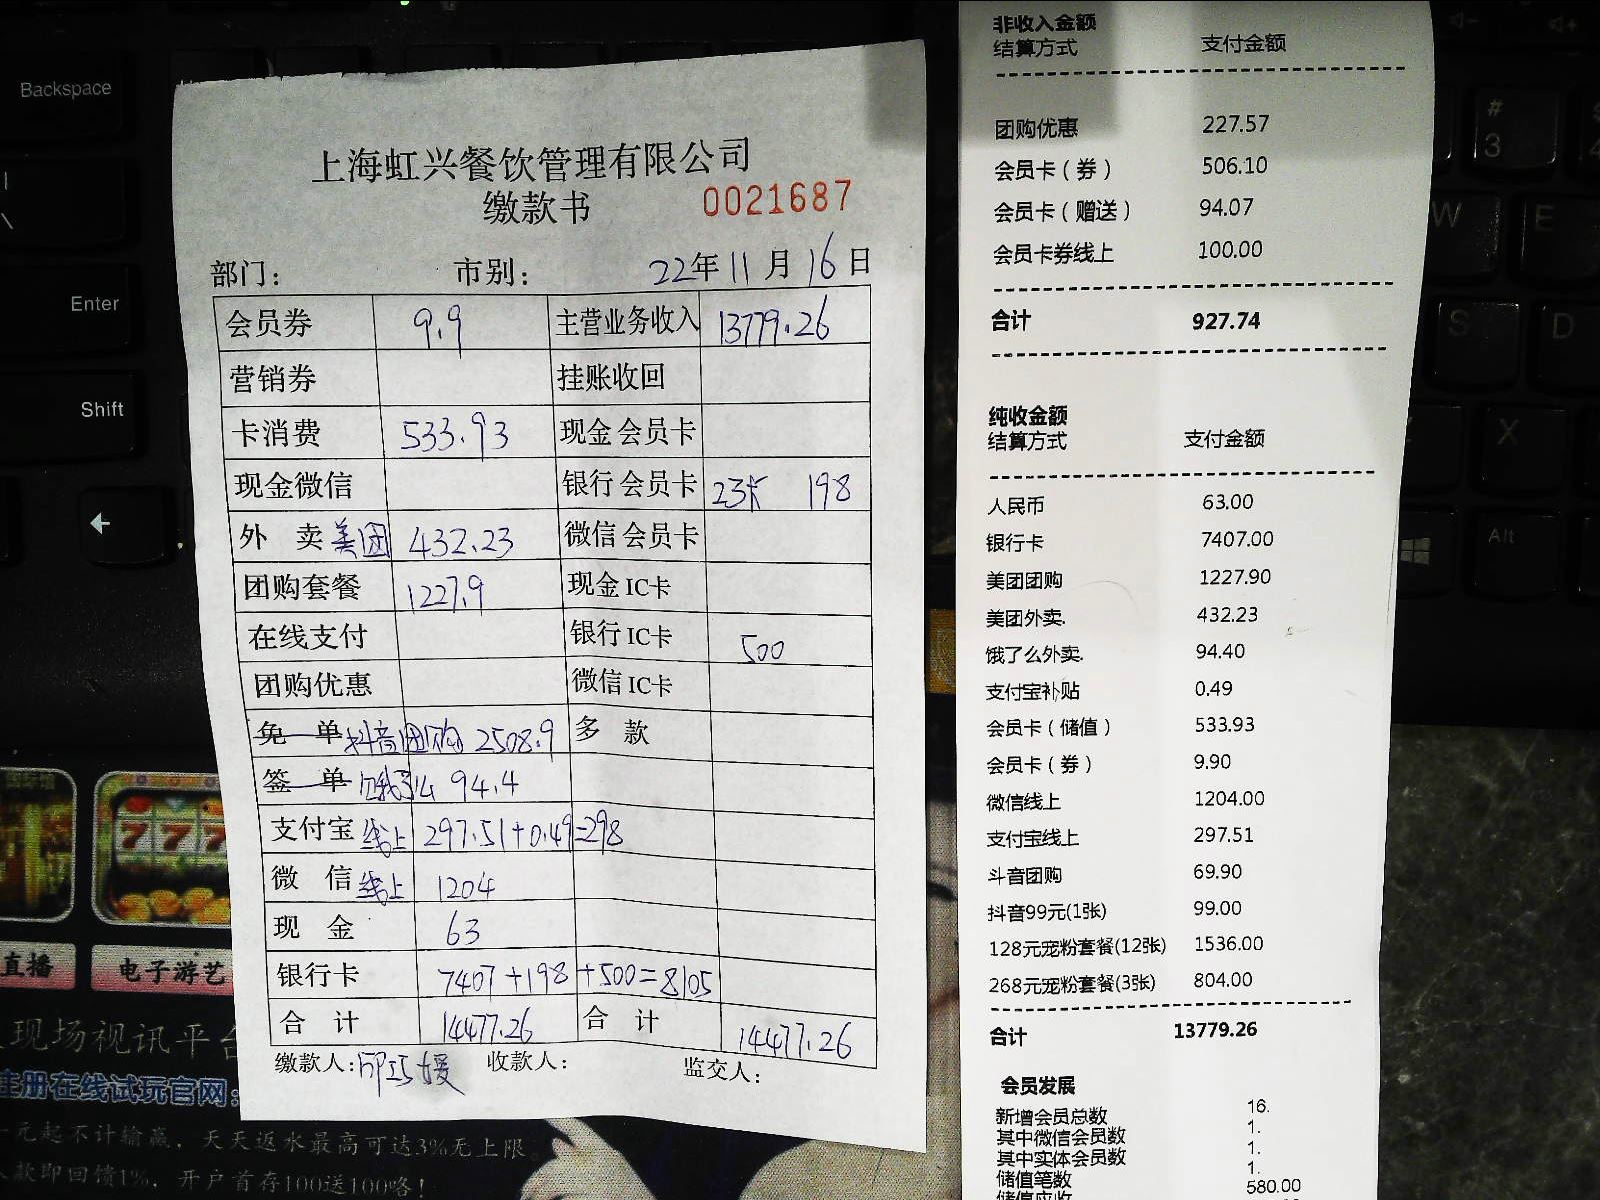 上海虹兴餐饮管理有限公司
缴款书 0021687
部门： 市别： 22年11月16日
会员券 9.9 主营业务收入 13779.26
营销券 挂账收回
卡消费 533.93 现金会员卡
现金微信 银行会员卡 23长 198
外 卖 美团 432.23 微信会员卡
团购套餐 1227.9 现金IC卡
在线支付 银行IC卡 500
团购优惠 微信IC卡
免 单 抖音团购 2508.9 多 款
签 单 饿了么 94.4
支付宝 线上 297.51+0.49=298
微 信 线上 1204
现 金 63
银行卡 7407+198+500=8105
合 计 14477.26 合 计 14477.26
缴款人: 收款人: 监交人:
非收入金额
结算方式 支付金额
团购优惠 227.57
会员卡（券） 506.10
会员卡（赠送） 94.07
会员卡券线上 100.00
合计 927.74
纯收金额
结算方式 支付金额
人民币 63.00
银行卡 7407.00
美团团购 1227.90
美团外卖. 432.23
饿了么外卖. 94.40
支付宝补贴 0.49
会员卡（储值） 533.93
会员卡（券） 9.90
微信线上 1204.00
支付宝线上 297.51
斗音团购 69.90
抖音99元(1张) 99.00
128元宠粉套餐(12张) 1536.00
268元宠粉套餐(3张) 804.00
合计 13779.26
会员发展
新增会员总数 16.
其中微信会员数 1.
其中实体会员数 1.
储值笔数 1.
储值应收 580.00
Backspace
Enter
Shift
#
3
W
E
S
D
X
Alt
777
直播
电子游艺
现场视讯平台
注册在线试玩官网:
一元起不计输赢，天天返水最高可达3%无上限。
款即回馈1%，开户首存100送100咯！